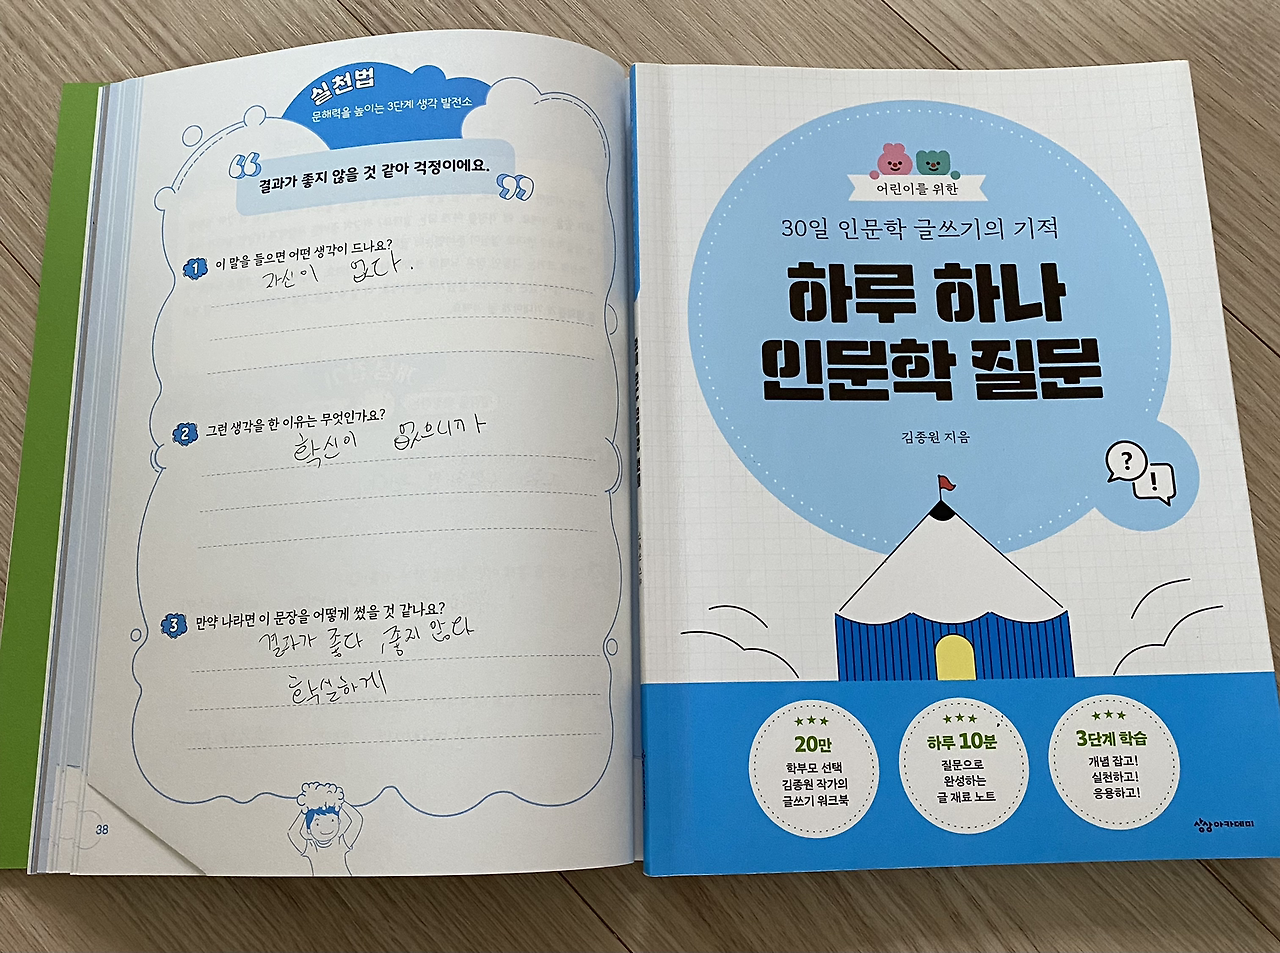 실천법
문해력을 높이는 3단계 생각 발전소
“ 결과가 좋지 않을 것 같아 걱정이에요. ”
1 이 말을 들으면 어떤 생각이 드나요?
자신이 없다.
2 그런 생각을 한 이유는 무엇인가요?
확신이 없으니까
3 만약 나라면 이 문장을 어떻게 썼을 것 같나요?
결과가 좋다, 좋지 않다
확실하게
38
어린이를 위한
30일 인문학 글쓰기의 기적
하루 하나
인문학 질문
김종원 지음
?
!
20만
학부모 선택
김종원 작가의
글쓰기 워크북
하루 10분
질문으로
완성하는
글 재료 노트
3단계 학습
개념 잡고!
실천하고!
응용하고!
상상아카데미